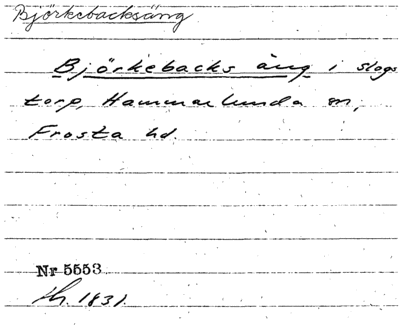 Björkebacksäng
Björkebacks äng i slogs
torp, Hammarlunda sn,
Frosta hd.
Nr 5553
1831